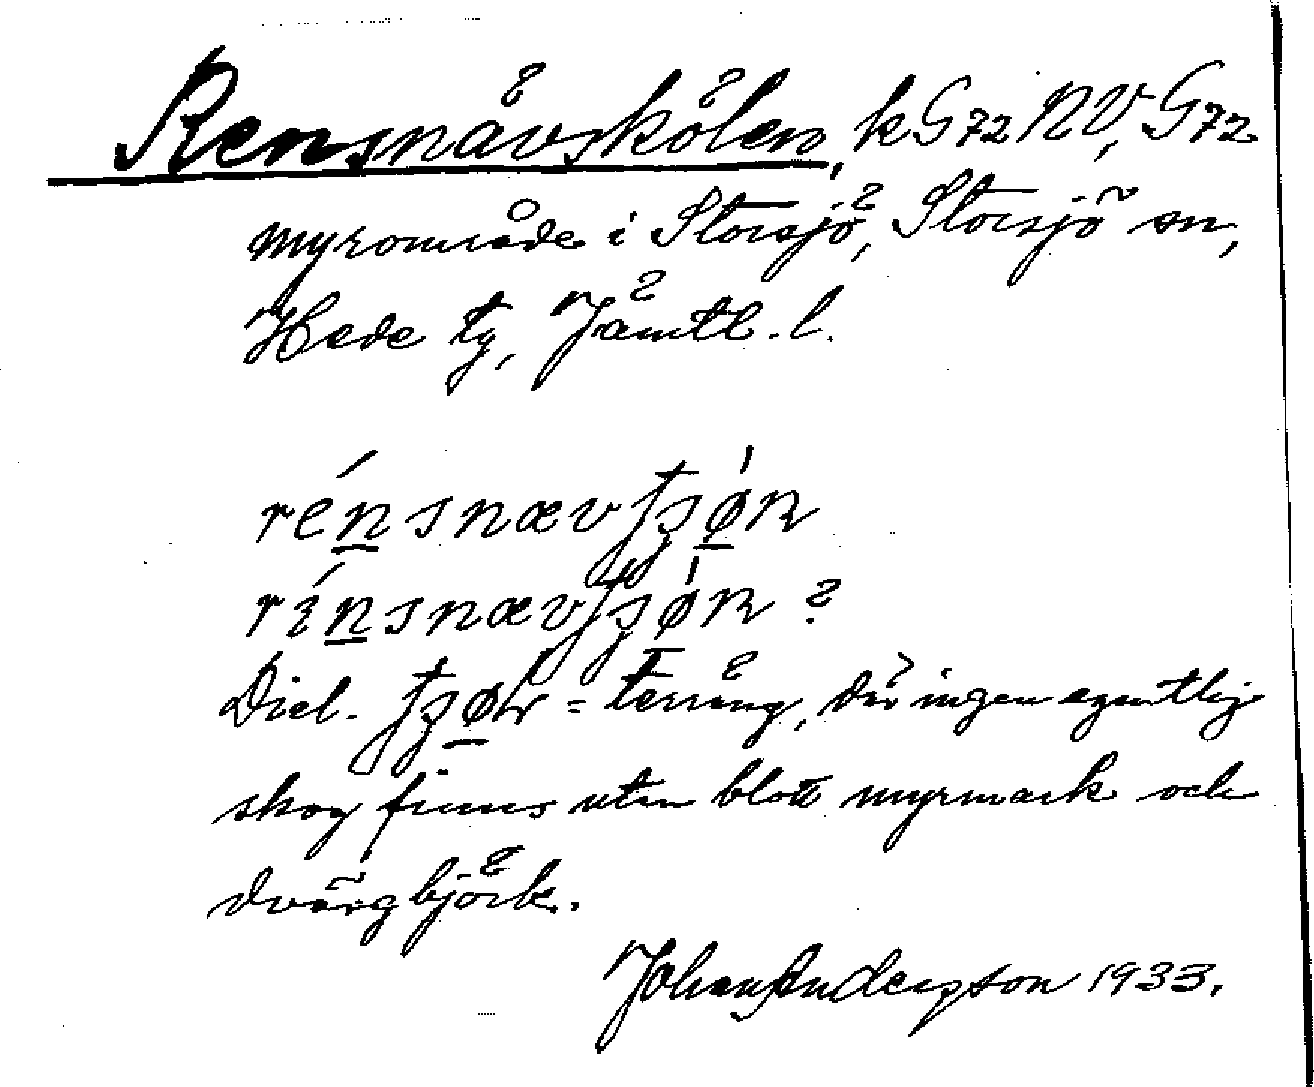 Rensnåvskölen, k G72 NV, G72
myrområde i Storsjö, Storsjö sn,
Hede tg, Jämtl. l.
rénsnævʃʒø̀n
rénsnævʃʒøn ?
Dial. = terräng, där ingen egentlig
skog finns utan blott myrmark och
dvärgbjörk.
Johan Anderzson 1933.